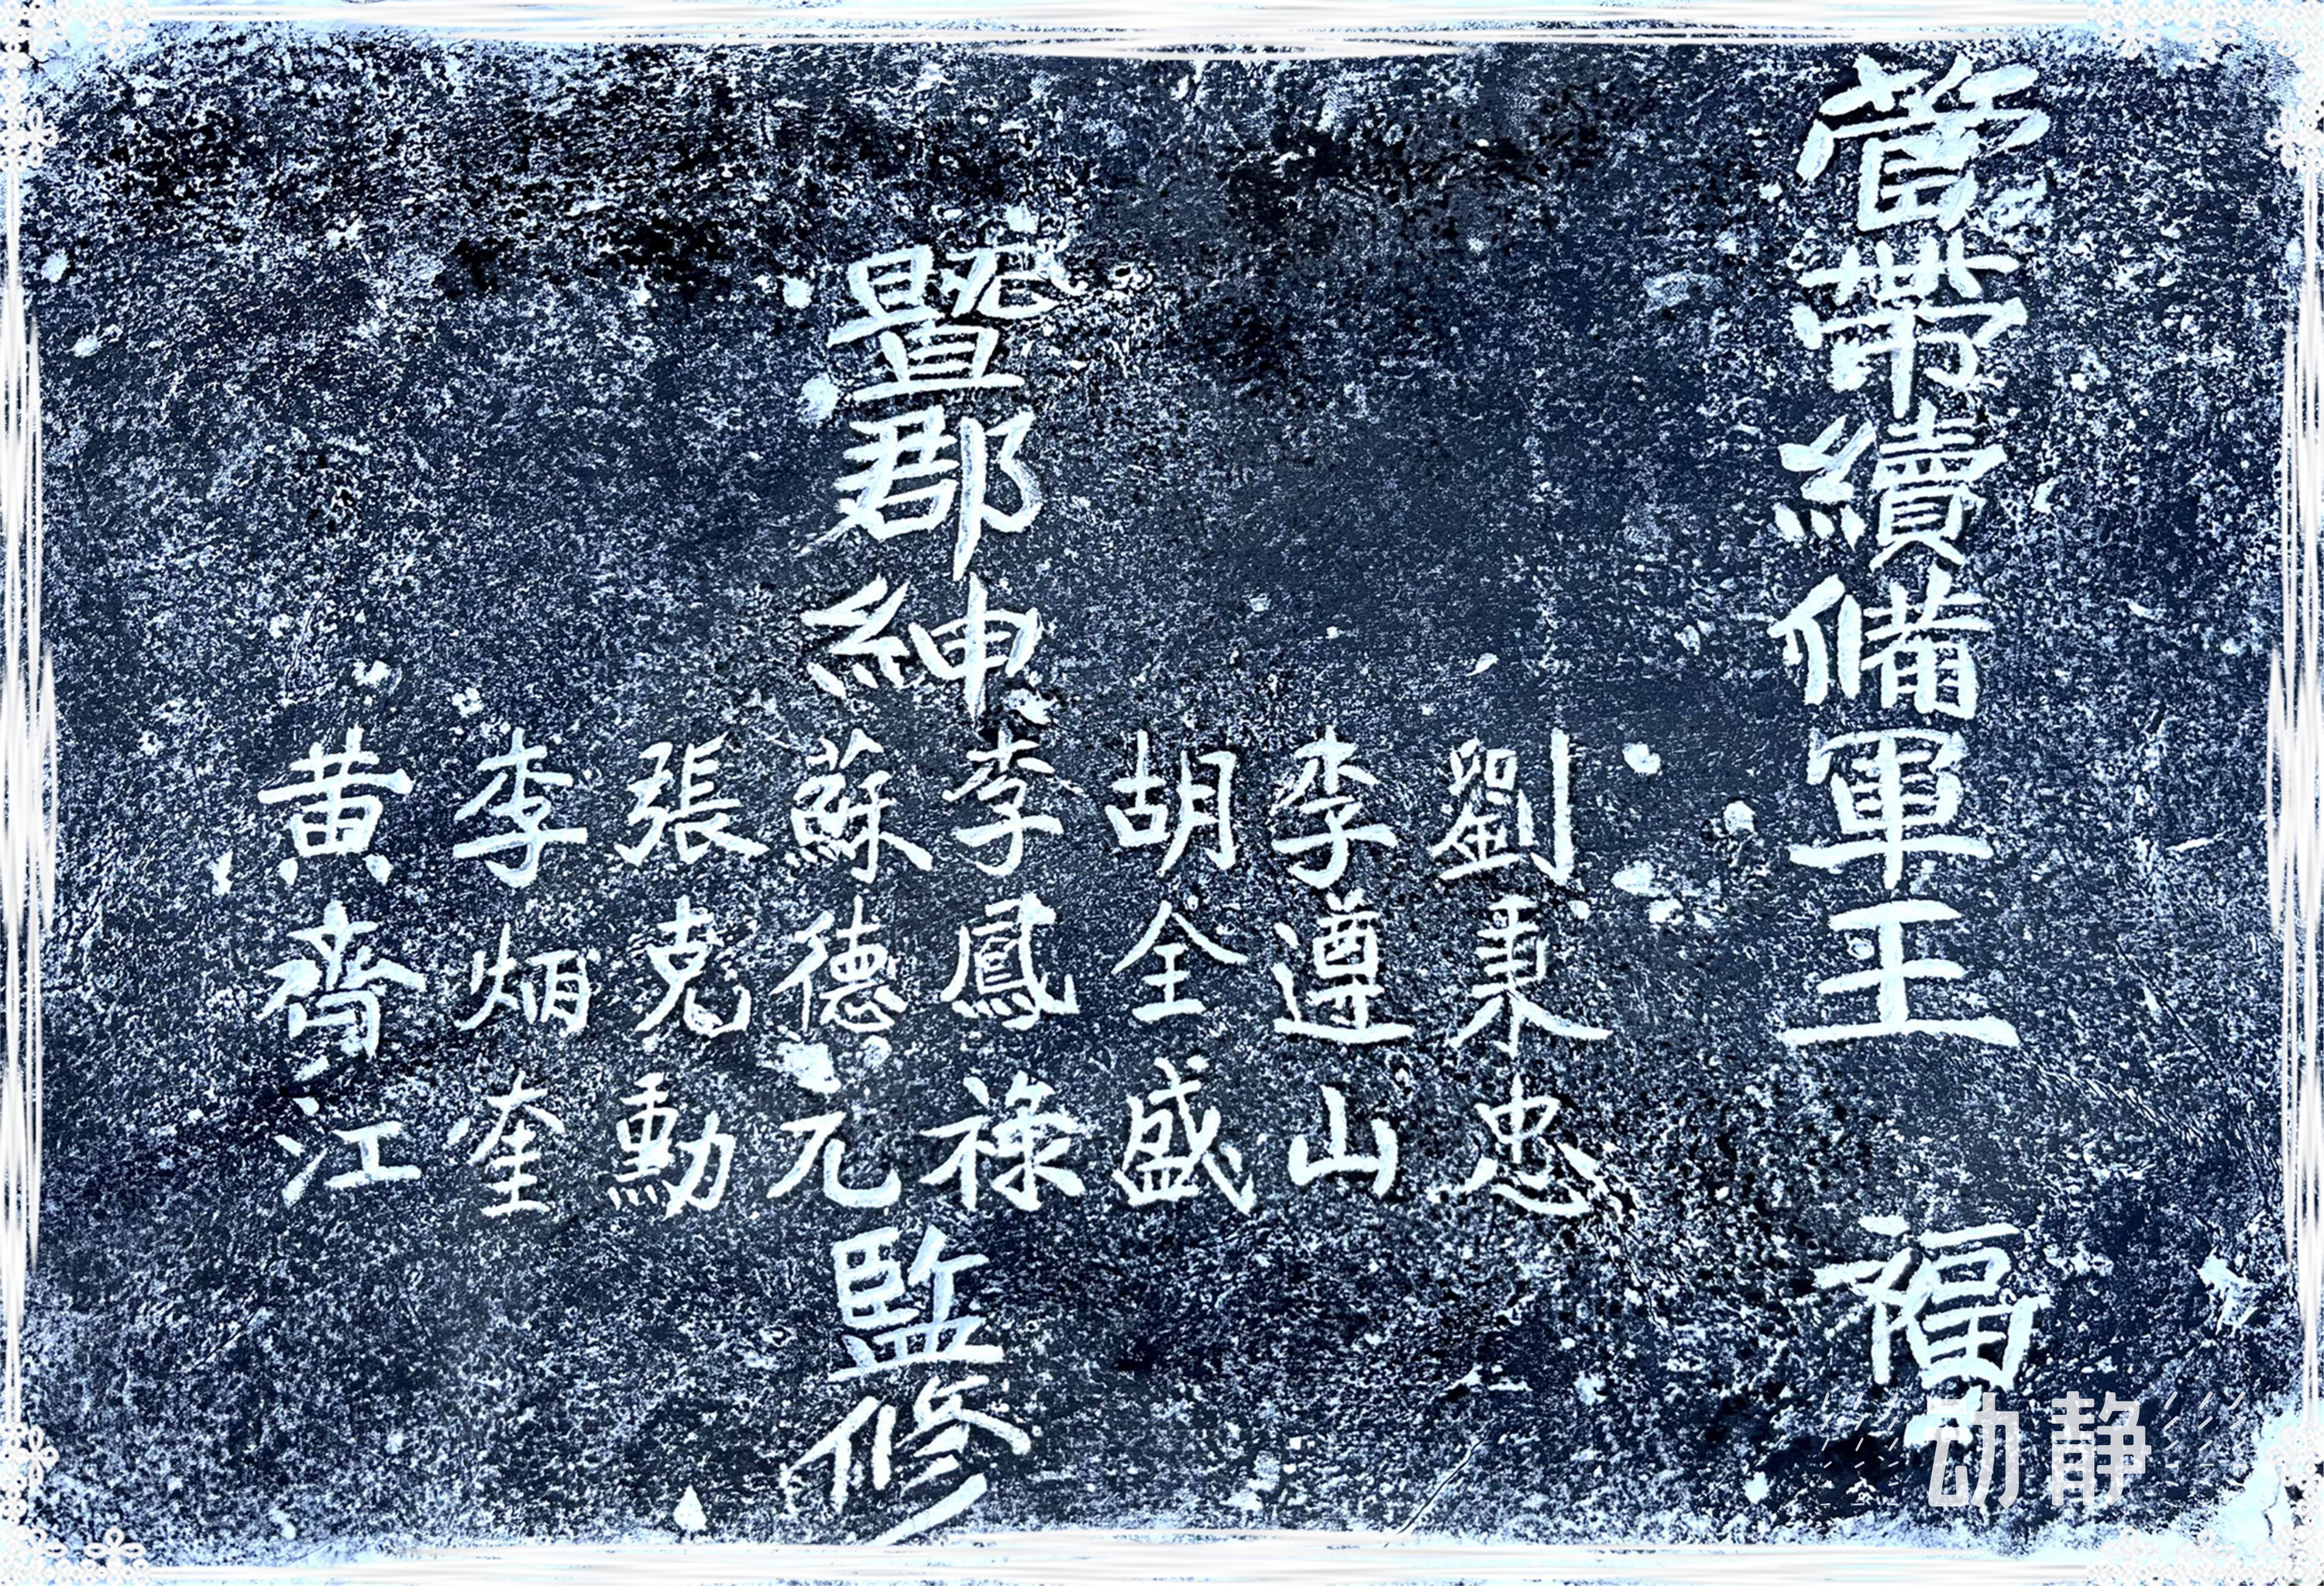 管帶續備軍王　福
暨郡紳
劉秉忠
李遵山
胡全盛
李鳳祿
蘇德元
張克勳
李炳奎
黃齊江
監修
动静